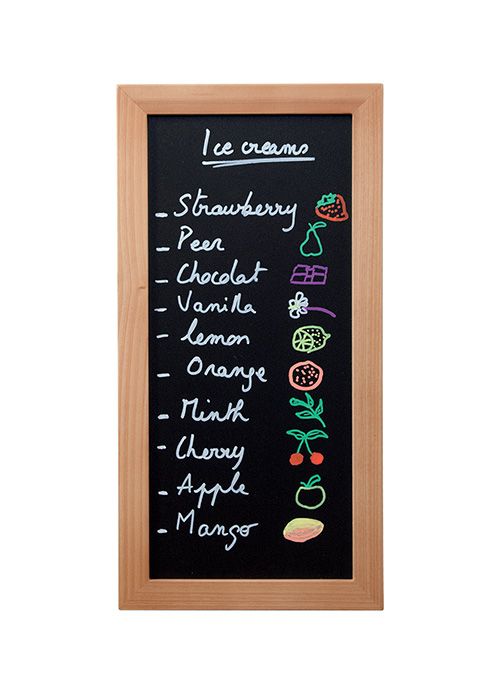 Ice creams
- Strawberry
- Peer
- Chocolat
- Vanilla
- lemon
- Orange
- Minth
- Cherry
- Apple
- Mango